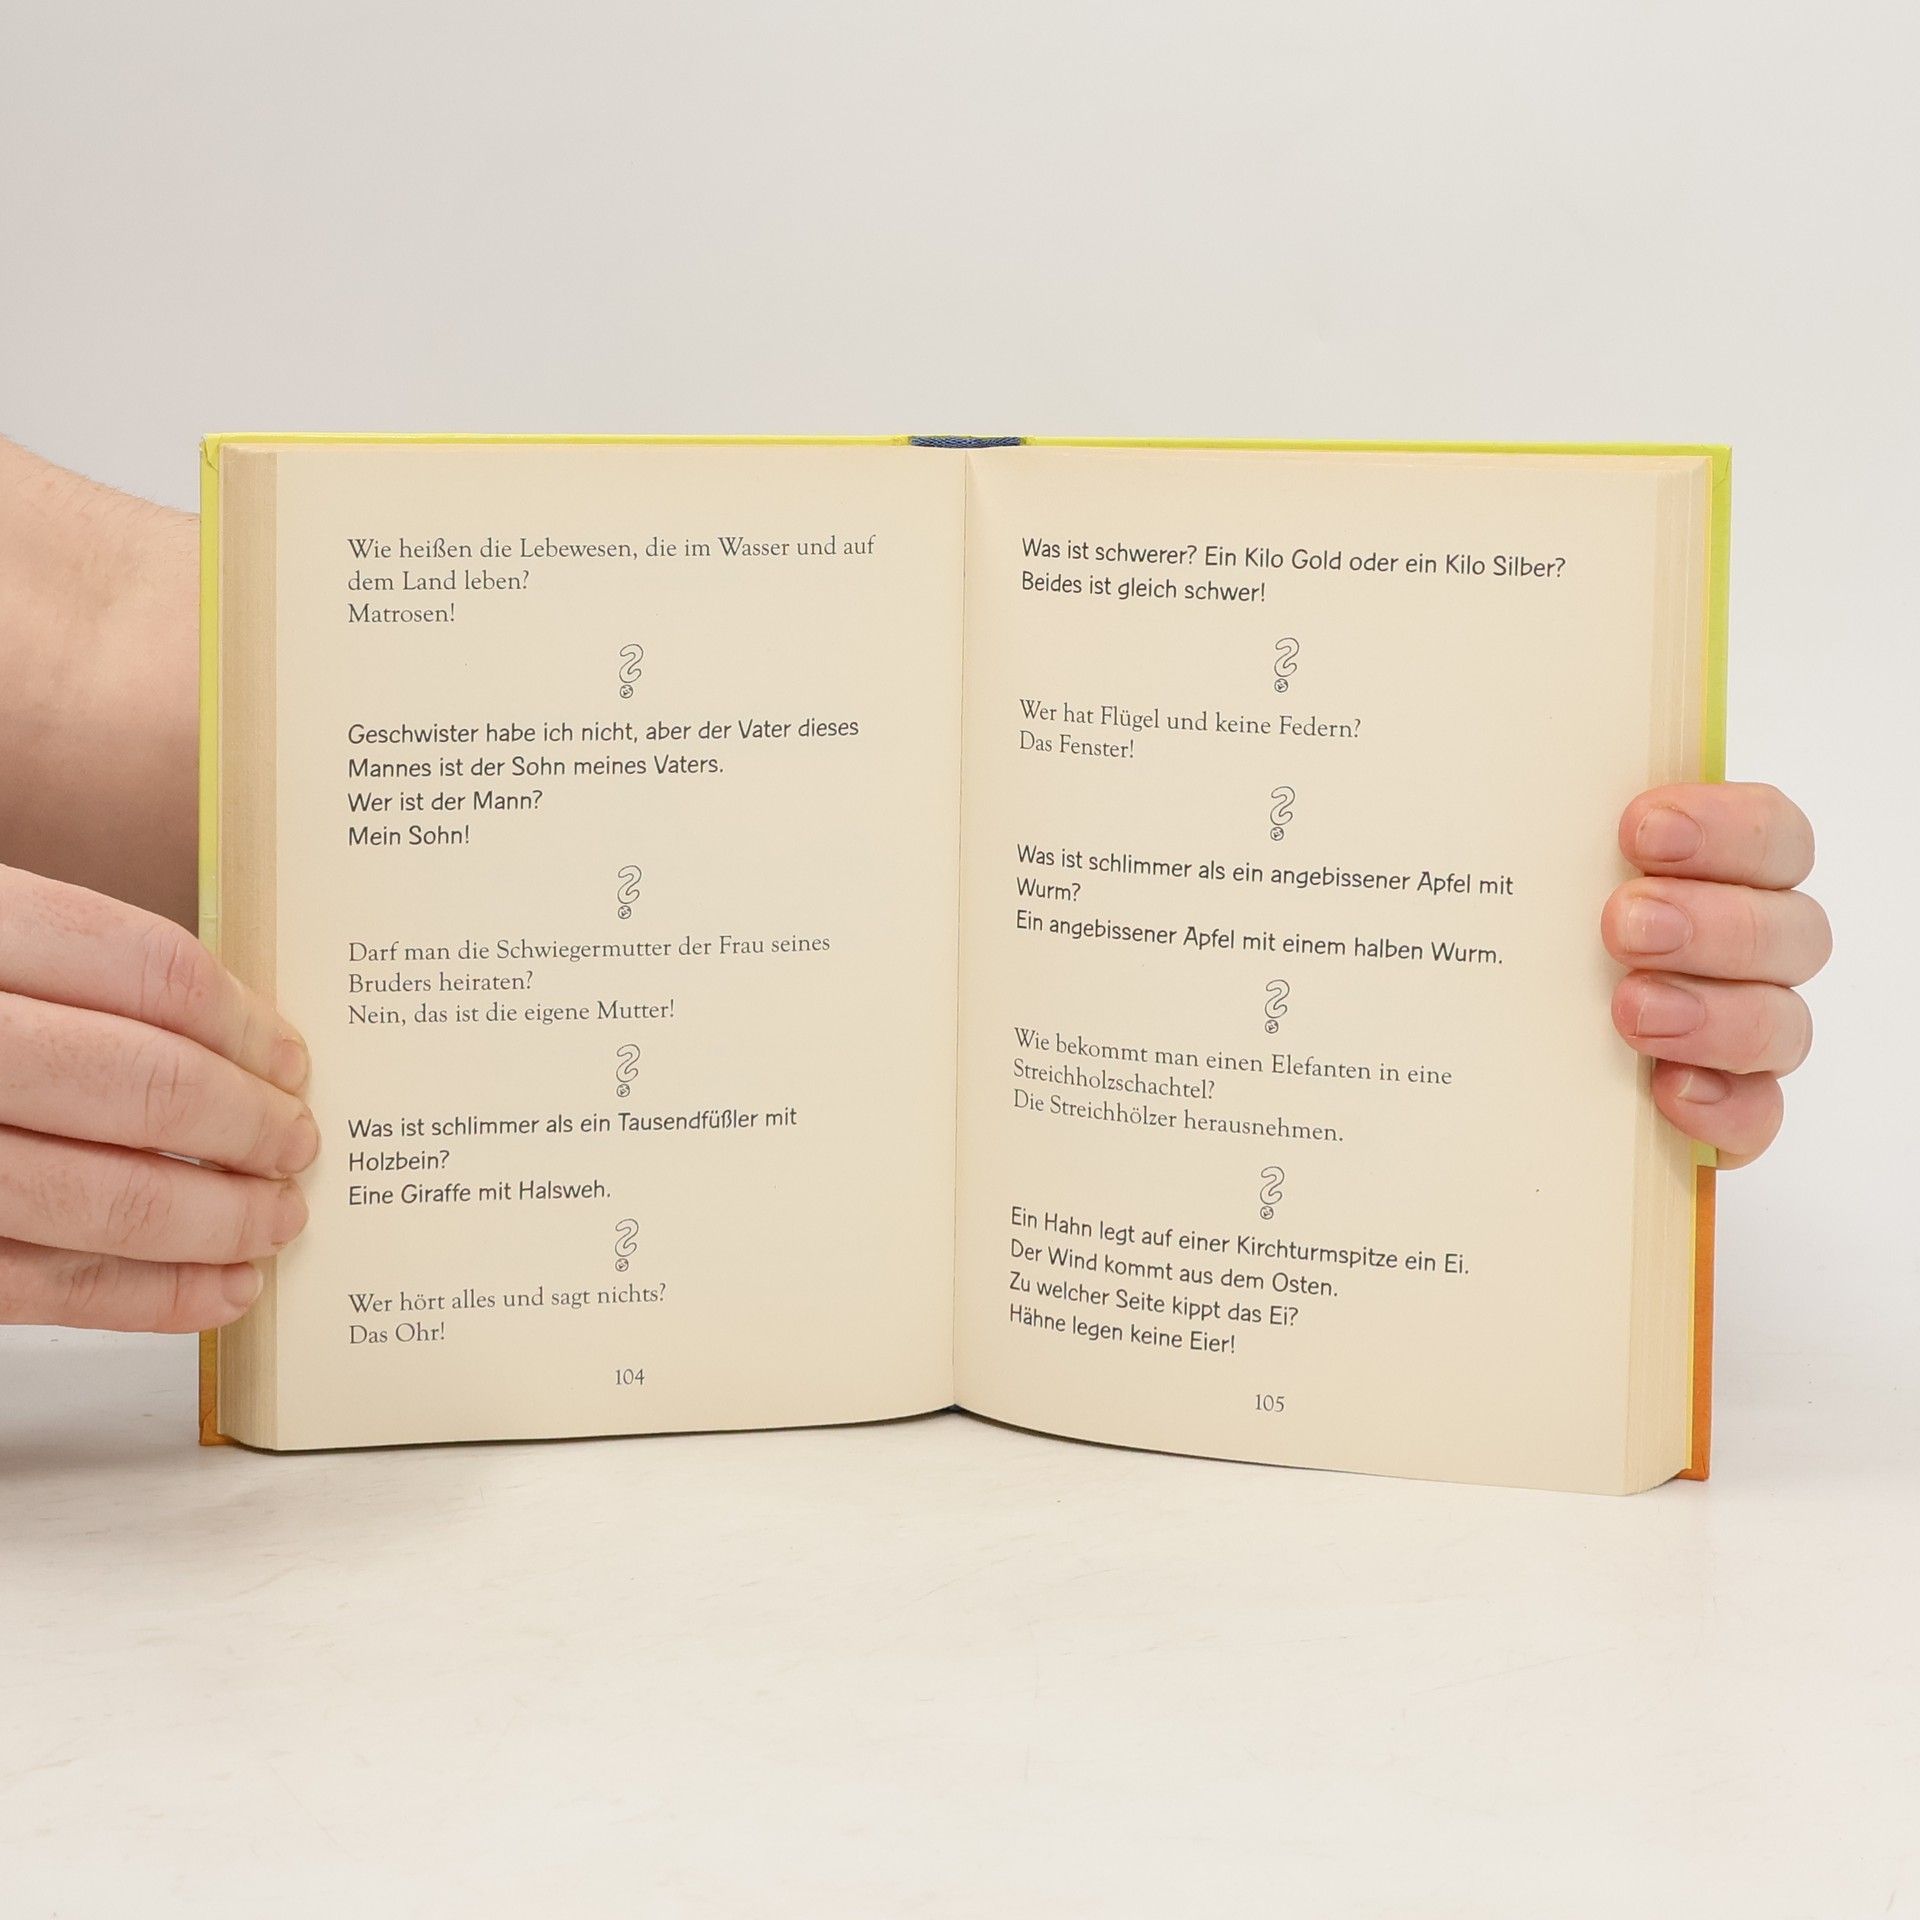 Wie heißen die Lebewesen, die im Wasser und auf
dem Land leben?
Matrosen!
Geschwister habe ich nicht, aber der Vater dieses
Mannes ist der Sohn meines Vaters.
Wer ist der Mann?
Mein Sohn!
Darf man die Schwiegermutter der Frau seines
Bruders heiraten?
Nein, das ist die eigene Mutter!
Was ist schlimmer als ein Tausendfüßler mit
Holzbein?
Eine Giraffe mit Halsweh.
Wer hört alles und sagt nichts?
Das Ohr!
104
Was ist schwerer? Ein Kilo Gold oder ein Kilo Silber?
Beides ist gleich schwer!
Wer hat Flügel und keine Federn?
Das Fenster!
Was ist schlimmer als ein angebissener Apfel mit
Wurm?
Ein angebissener Apfel mit einem halben Wurm.
Wie bekommt man einen Elefanten in eine
Streichholzschachtel?
Die Streichhölzer herausnehmen.
Ein Hahn legt auf einer Kirchturmspitze ein Ei.
Der Wind kommt aus dem Osten.
Zu welcher Seite kippt das Ei?
Hähne legen keine Eier!
105